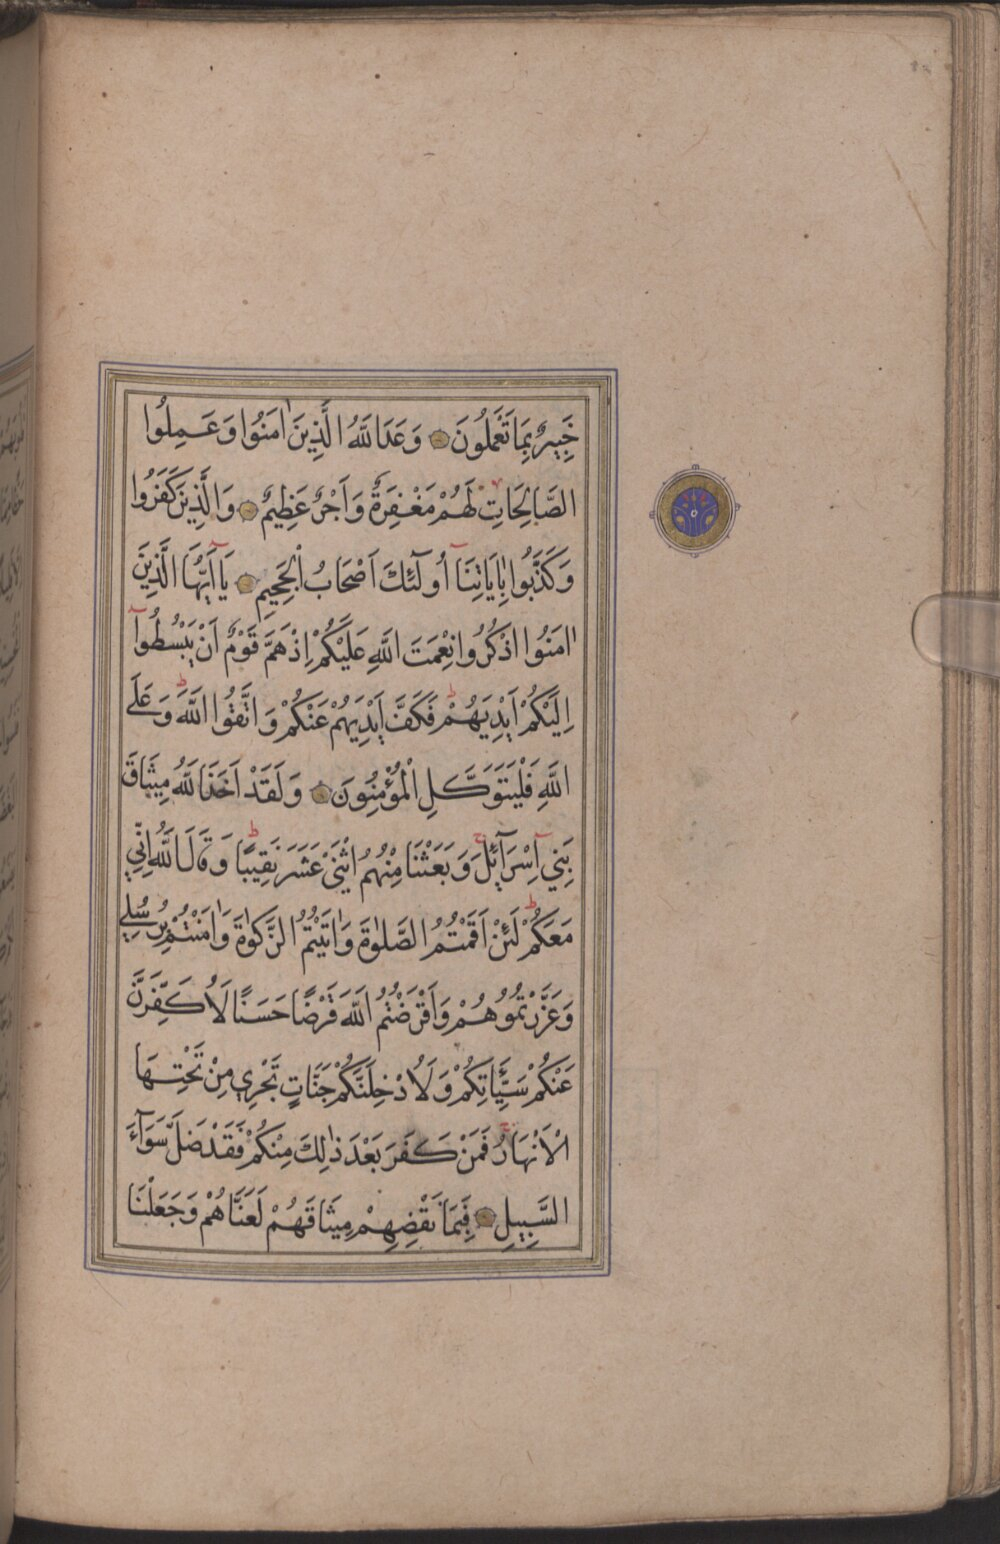 خَبِيرٌ بِمَا تَعْمَلُونَ وَعَدَ اللَّهُ الَّذِينَ اٰمَنُوا وَعَمِلُوا
الصَّالِحَاتِ لَهُمْ مَغْفِرَةٌ وَاَجْرٌ عَظِيمٌ وَالَّذِينَ كَفَرُوا
وَكَذَّبُوا بِاٰيَاتِنَآ اُولٰٓئِكَ اَصْحَابُ الْجَحِيمِ يَآ اَيُّهَا الَّذِينَ
اٰمَنُوا اذْكُرُوا نِعْمَتَ اللَّهِ عَلَيْكُمْ اِذْ هَمَّ قَوْمٌ اَنْ يَبْسُطُوآ
اِلَيْكُمْ اَيْدِيَهُمْ فَكَفَّ اَيْدِيَهُمْ عَنْكُمْ وَاتَّقُوا اللَّهَ وَعَلَى
اللَّهِ فَلْيَتَوَكَّلِ الْمُؤْمِنُونَ وَلَقَدْ اَخَذَ اللَّهُ مِيثَاقَ
بَنِيٓ اِسْرَآئِلَ وَبَعَثْنَا مِنْهُمُ اثْنَيْ عَشَرَ نَقِيبًا وَقَالَ اللَّهُ اِنِّي
مَعَكُمْ لَئِنْ اَقَمْتُمُ الصَّلٰوةَ وَاٰتَيْتُمُ الزَّكٰوةَ وَاٰمَنْتُمْ بِرُسُلِي
وَعَزَّرْتُمُوهُمْ وَاَقْرَضْتُمُ اللَّهَ قَرْضًا حَسَنًا لَاُكَفِّرَنَّ
عَنْكُمْ سَيِّئَاتِكُمْ وَلَاُدْخِلَنَّكُمْ جَنَّاتٍ تَجْرِي مِنْ تَحْتِهَا
الْاَنْهَارُ فَمَنْ كَفَرَ بَعْدَ ذٰلِكَ مِنْكُمْ فَقَدْ ضَلَّ سَوَآءَ
السَّبِيلِ فَبِمَا نَقْضِهِمْ مِيثَاقَهُمْ لَعَنَّاهُمْ وَجَعَلْنَا